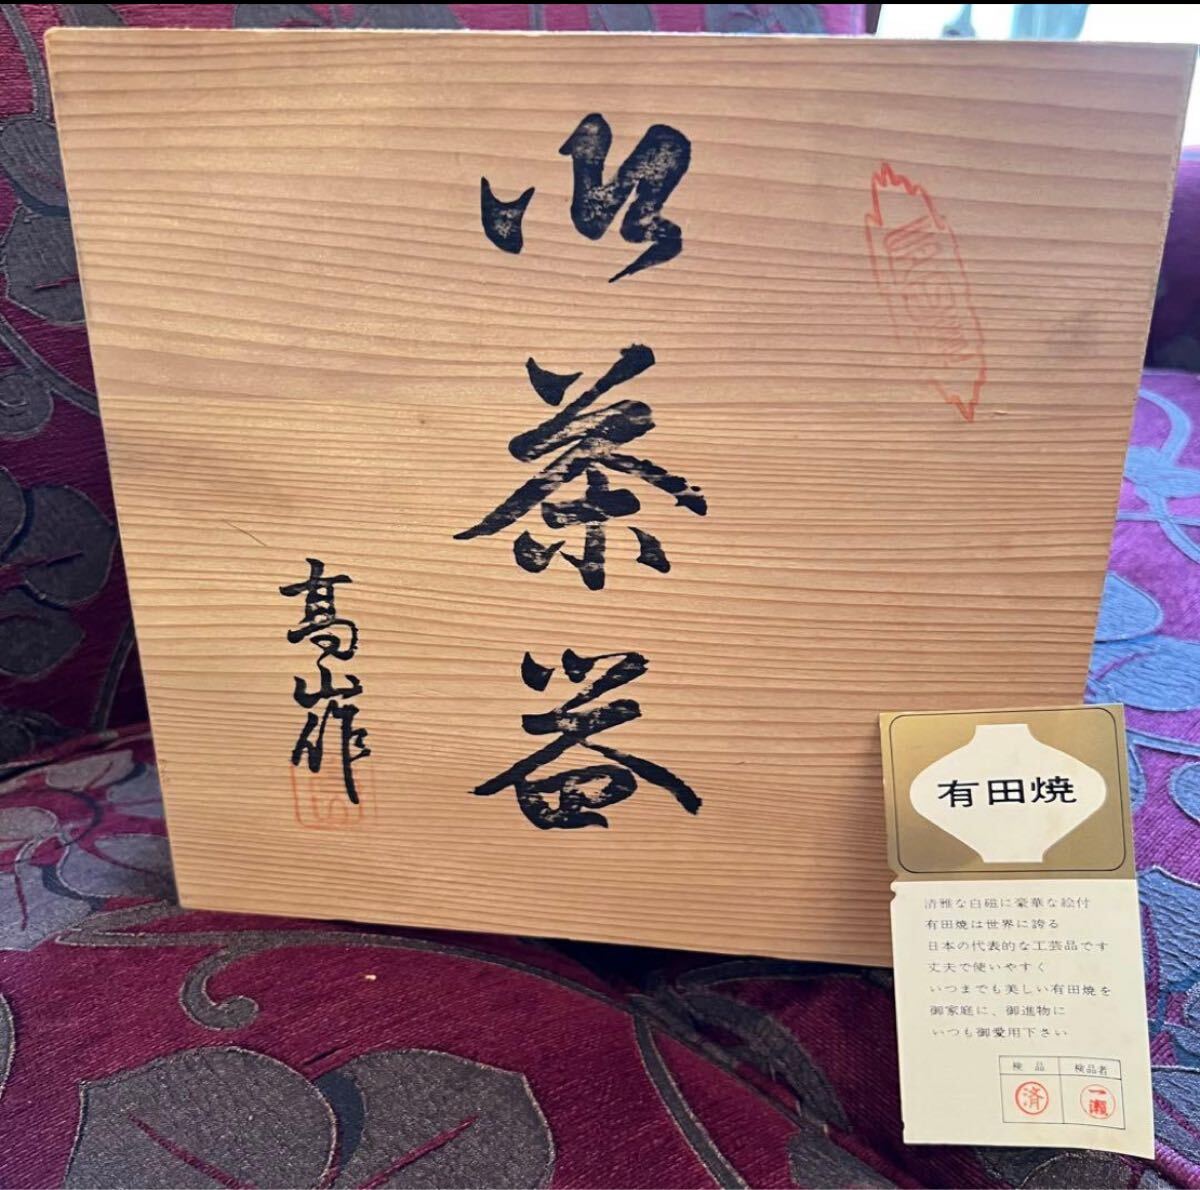 御茶器
高山作
有田焼
清雅な白磁に豪華な絵付
有田焼は世界に誇る
日本の代表的な工芸品です
丈夫で使いやすく
いつまでも美しい有田焼を
御家庭に、御進物に
いつも御愛用下さい
検品 検品者
済 一瀬